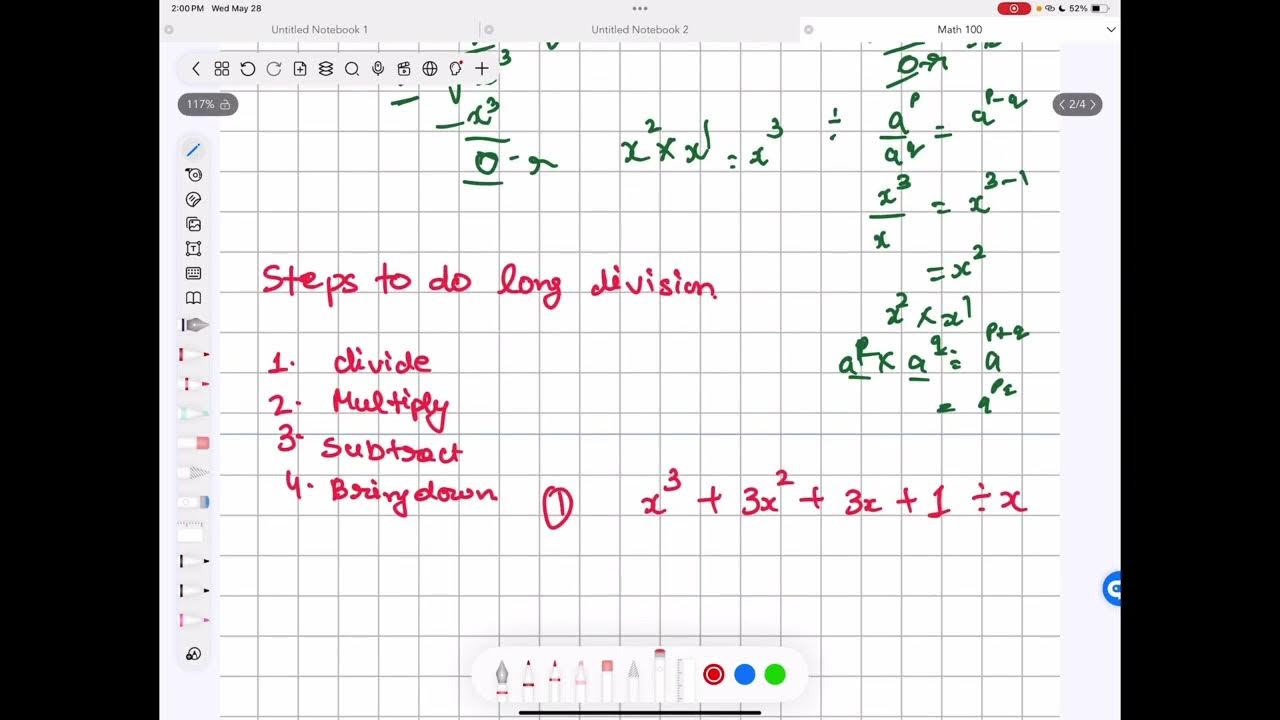 2:00 PM Wed May 28
52%
Untitled Notebook 1
Untitled Notebook 2
Math 100
117%
2/4
3
x³
0 - r
x² × x¹ = x³
0-r
÷ a^p/a^q = a^(p-q)
x³/x = x^(3-1)
= x²
x² × x¹
a^p × a^q = a^(p+q)
Steps to do long division.
1. divide
2. Multiply
3. Subtract
4. Bring down
① x³ + 3x² + 3x + 1 ÷ x